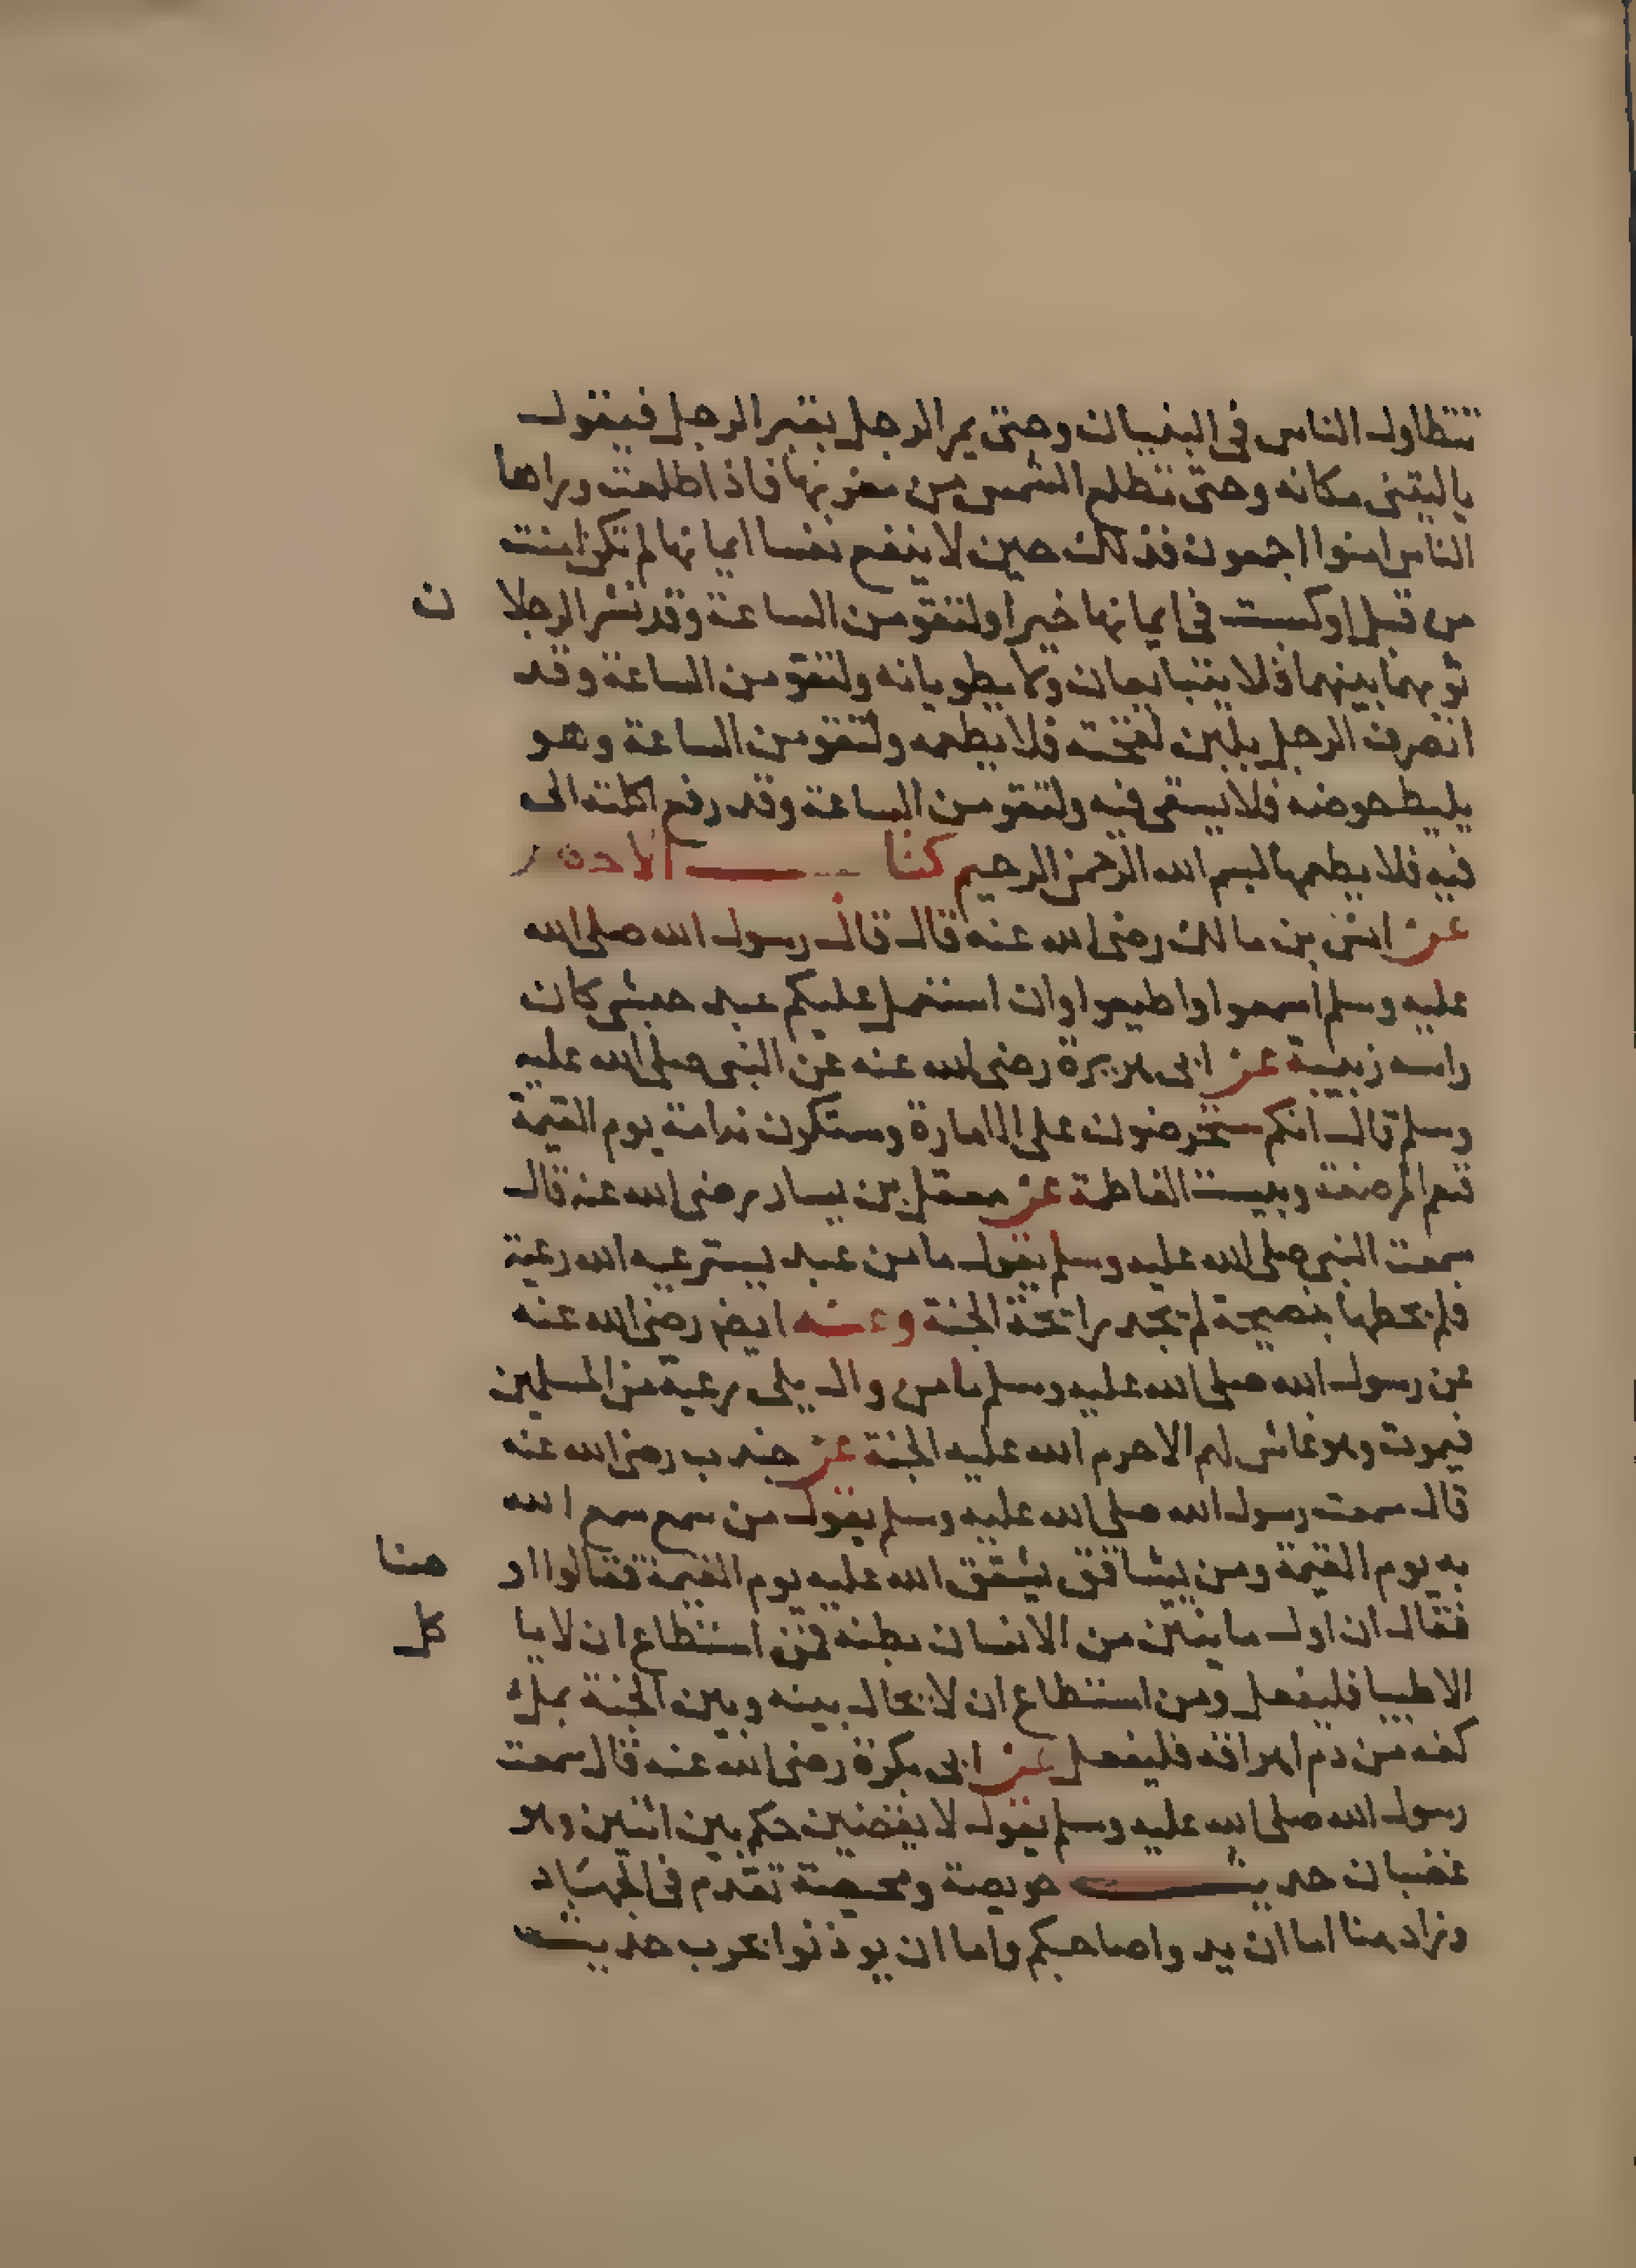 تتطاول الناس في البنيان وحتى يمر الرجل بقبر الرجل فيقول
ياليتني مكانه وحتى تطلع الشمس من مغربها فاذا طلعت وراها
الناس امنوا اجمعون فذلك حين لا ينفع نفسا ايمانها لم تكن امنت
من قبل او كسبت في ايمانها خيرا ولتقومن الساعة وقد نشر الرجلا ن
ثوبهما بينهما فلا يتبايعان ولا يطويانه ولتقومن الساعة وقد
انصرف الرجل بلبن لقحته فلا يطعمه ولتقومن الساعة وهو
يليط حوضه فلا يسقى فيه ولتقومن الساعة وقد رفع اكلته الى
فيه فلا يطعمها بسم الله الرحمن الرحيم كتا ب الاحكام
عن انس بن مالك رضى الله عنه قال قال رسول الله صلى الله
عليه وسلم اسمعوا واطيعوا وان استعمل عليكم عبد حبشى كان
راسه زبيبة عن ابى هريرة رضى الله عنه عن النبى صلى الله عليه
وسلم قال انكم ستحرصون على الامارة وستكون ندامة يوم القيمة
فنعم المرضعة وبيست الفاطمة عن معقل بن يسار رضى الله عنه قال
سمعت النبى صلى الله عليه وسلم يقول ما من عبد يسترعيه الله رعية
فلم يحطها بنصيحة لم يجد رائحة الجنة وعنه ايضا رضى الله عنه
عن رسول الله صلى الله عليه وسلم ما من وال يلى رعية من المسلمين
فيموت وهو غاش لهم الا حرم الله عليه الجنة عن جندب رضى الله عنه
قال سمعت رسول الله صلى الله عليه وسلم يقول من سمع سمع الله
به يوم القيمة ومن يشاقق يشقق الله عليه يوم القيمة فقالوا او صنا
فقال ان اول ما ينتن من الانسان بطنه فمن استطاع ان لا يا كل
الا طيبا فليفعل ومن استطاع ان لا يحال بينه وبين الجنة بمل
كفه من دم اهراقه فليفعل عن ابى بكرة رضى الله عنه قال سمعت
رسول الله صلى الله عليه وسلم يقول لا يقضين حكم بين اثنين وهو
غضبان حديث حويصة ومحيصة تقدم في الجهاد
وزاد هنا اما ان يدوا صاحبكم واما ان يوذنوا بحرب حديث